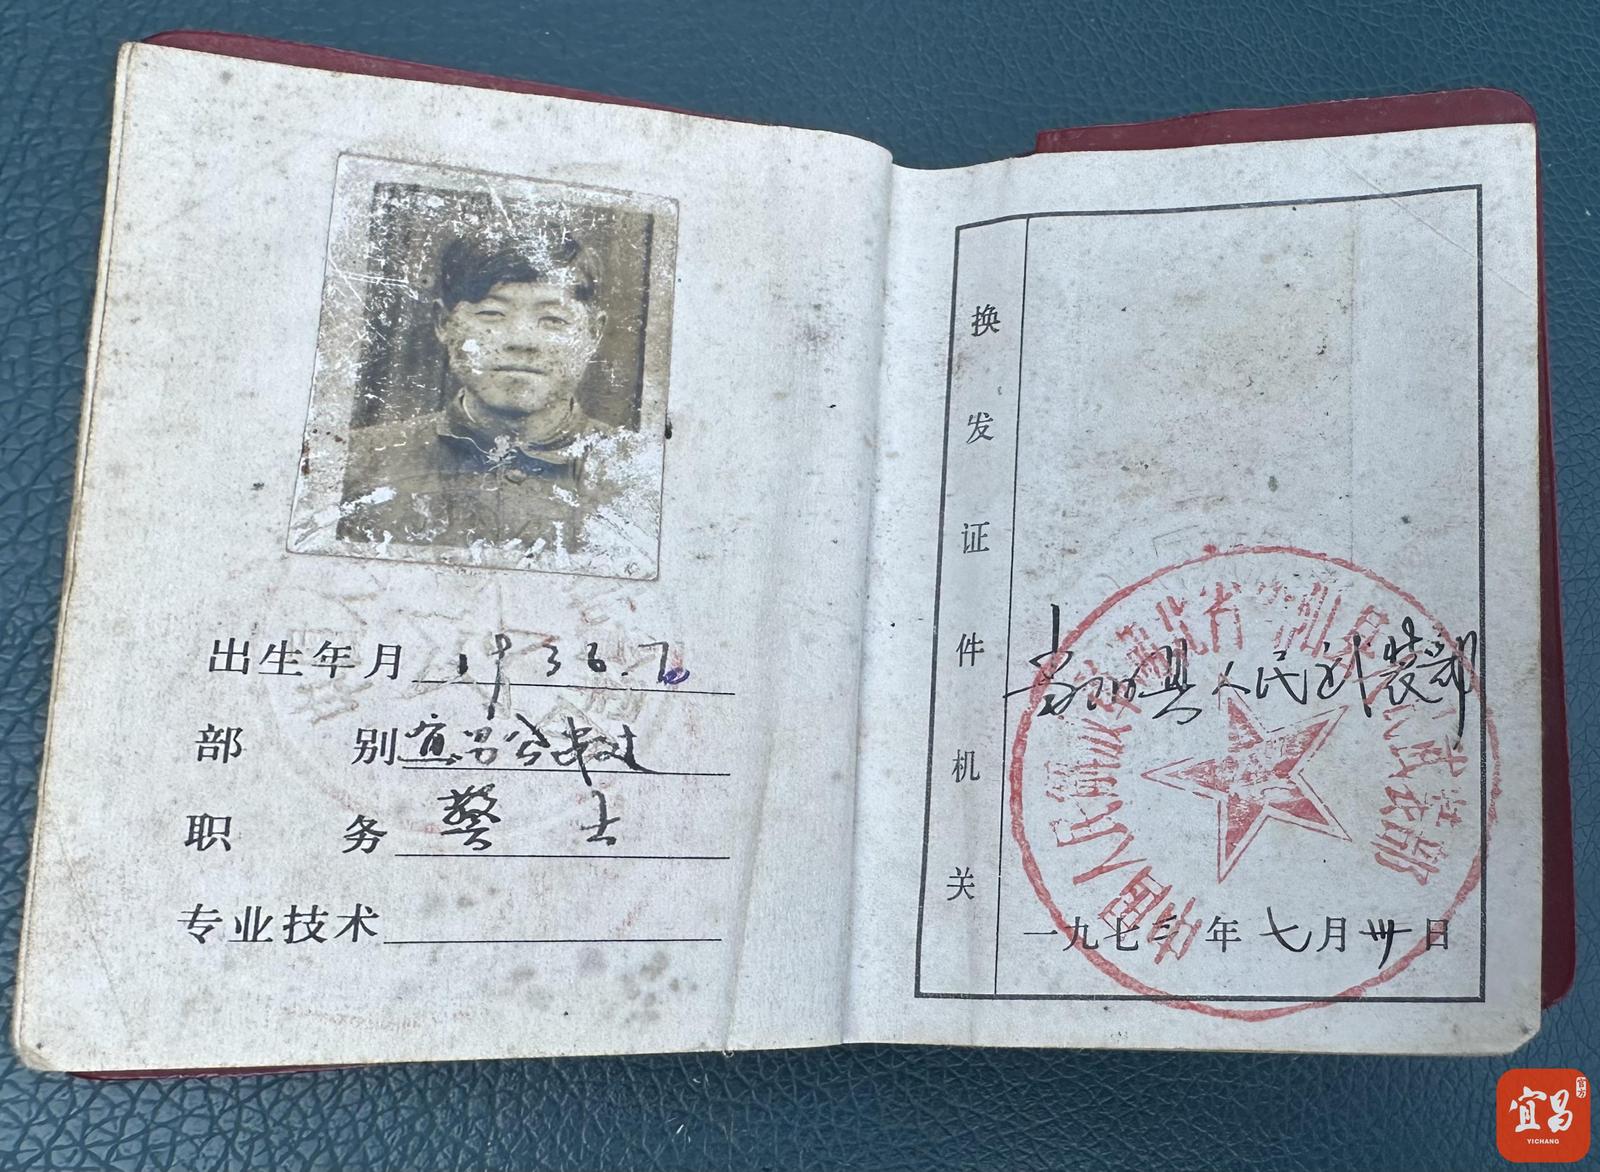 出生年月 1936.7
部别 宜昌公安
职务 警士
专业技术
换发证件机关
县人民武装部
一九七三年七月卅日
湖北省
县人民武装部
中国人民解放军
宜昌
官方
YICHANG